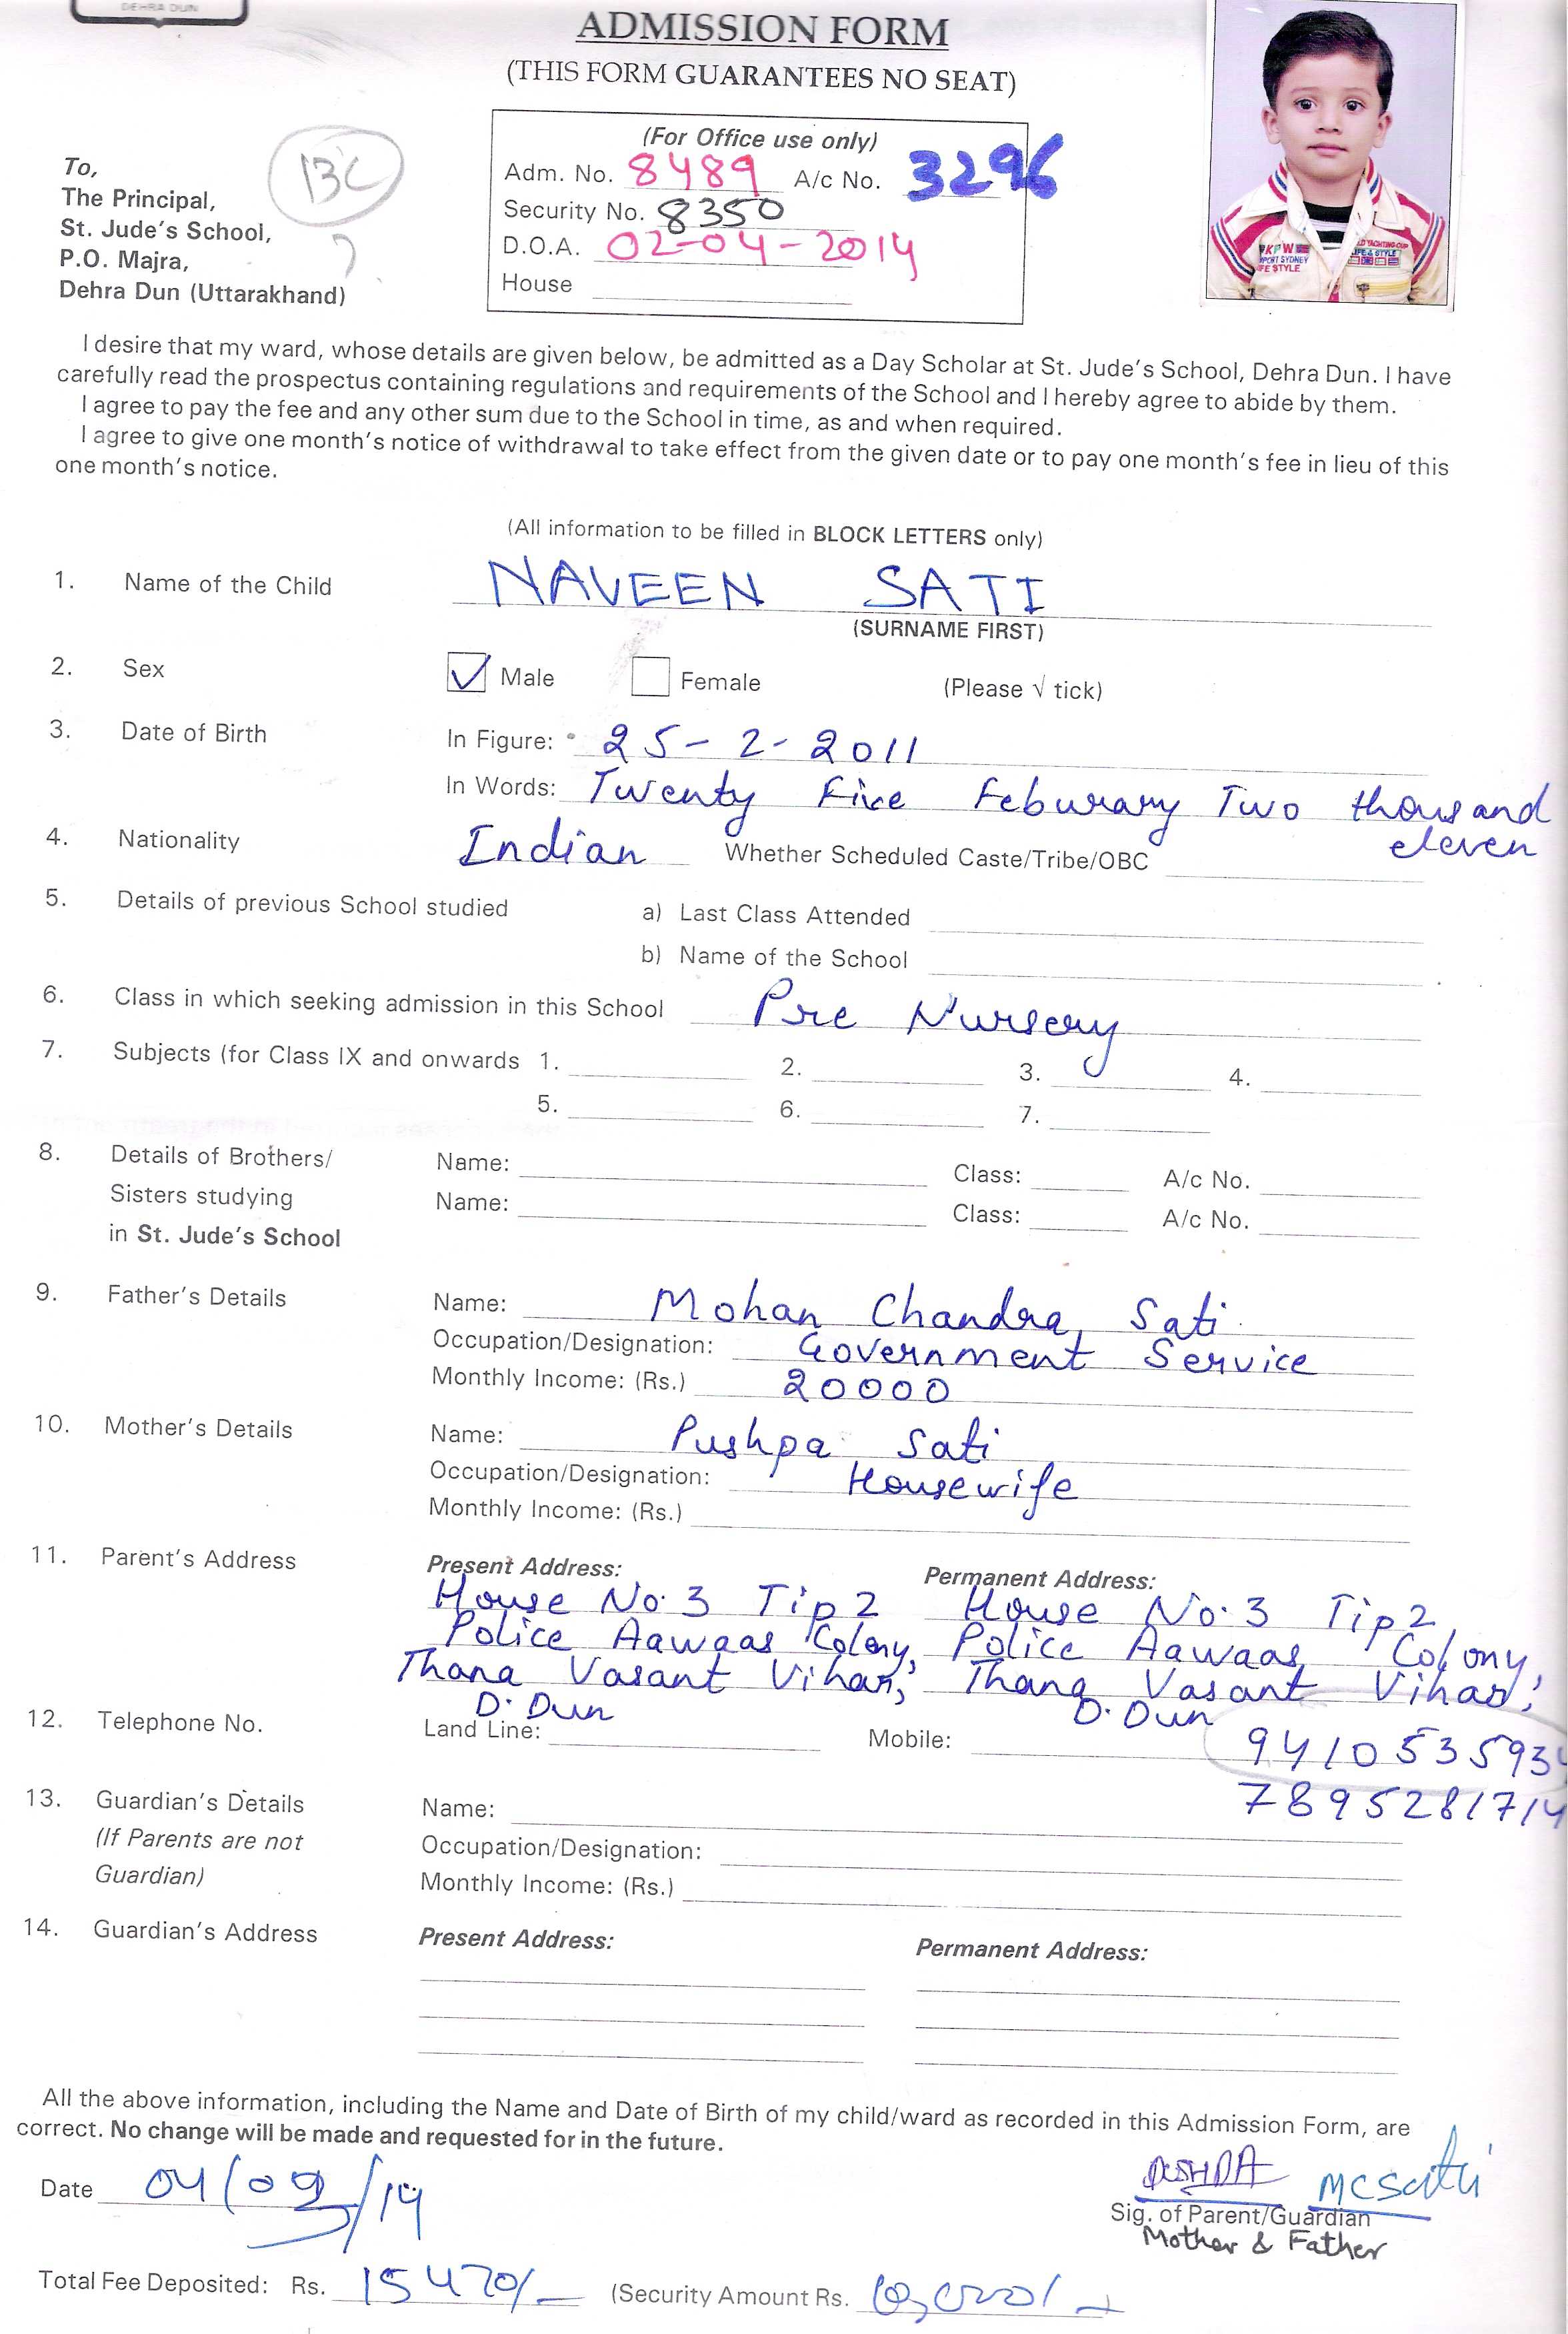 DEHRA DUN
ADMISSION FORM
(THIS FORM GUARANTEES NO SEAT)
(For Office use only)
Adm. No. 8489 A/c No. 3296
Security No. 8350
D.O.A. 02-04-2014
House
To,
The Principal,
St. Jude's School,
P.O. Majra,
Dehra Dun (Uttarakhand)
KPW
SPORT SYDNEY
LIFE STYLE
LD YACHTING CUP
LIFE & STYLE
I desire that my ward, whose details are given below, be admitted as a Day Scholar at St. Jude's School, Dehra Dun. I have
carefully read the prospectus containing regulations and requirements of the School and I hereby agree to abide by them.
I agree to pay the fee and any other sum due to the School in time, as and when required.
I agree to give one month's notice of withdrawal to take effect from the given date or to pay one month's fee in lieu of this
one month's notice.
(All information to be filled in BLOCK LETTERS only)
1. Name of the Child NAVEEN SATI
(SURNAME FIRST)
2. Sex ✓ Male Female (Please √ tick)
3. Date of Birth In Figure: 25-2-2011
In Words: Twenty Five Feburary Two thousand
eleven
4. Nationality Indian Whether Scheduled Caste/Tribe/OBC
5. Details of previous School studied a) Last Class Attended
b) Name of the School
6. Class in which seeking admission in this School Pre Nursery
7. Subjects (for Class IX and onwards 1. 2. 3. 4.
5. 6. 7.
8. Details of Brothers/ Name: Class: A/c No.
Sisters studying Name: Class: A/c No.
in St. Jude's School
9. Father's Details Name: Mohan Chandra Sati
Occupation/Designation: Government Service
Monthly Income: (Rs.) 20000
10. Mother's Details Name: Pushpa Sati
Occupation/Designation: Housewife
Monthly Income: (Rs.)
11. Parent's Address Present Address: Permanent Address:
House No. 3 Tip 2 House No. 3 Tip 2
Police Aawaas Colony, Police Aawaas Colony,
Thana Vasant Vihar, Thana Vasant Vihar,
D. Dun D. Dun
12. Telephone No. Land Line: Mobile: 9410535934
7895281714
13. Guardian's Details Name:
(If Parents are not Occupation/Designation:
Guardian) Monthly Income: (Rs.)
14. Guardian's Address Present Address: Permanent Address:
All the above information, including the Name and Date of Birth of my child/ward as recorded in this Admission Form, are
correct. No change will be made and requested for in the future.
Date 04/09/14 PUSHPA MCSati
Sig. of Parent/Guardian
Mother & Father
Total Fee Deposited: Rs. 15470/- (Security Amount Rs.